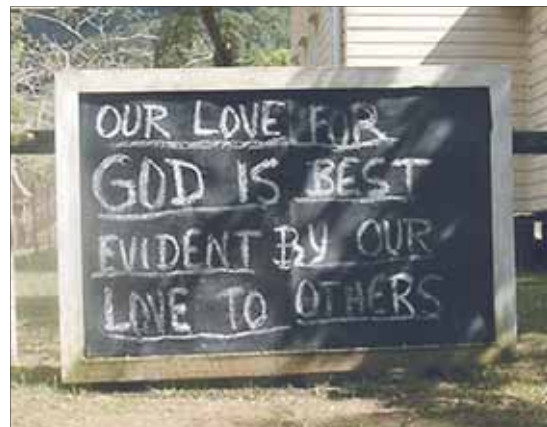 OUR LOVE FOR
GOD IS BEST
EVIDENT BY OUR
LOVE TO OTHERS